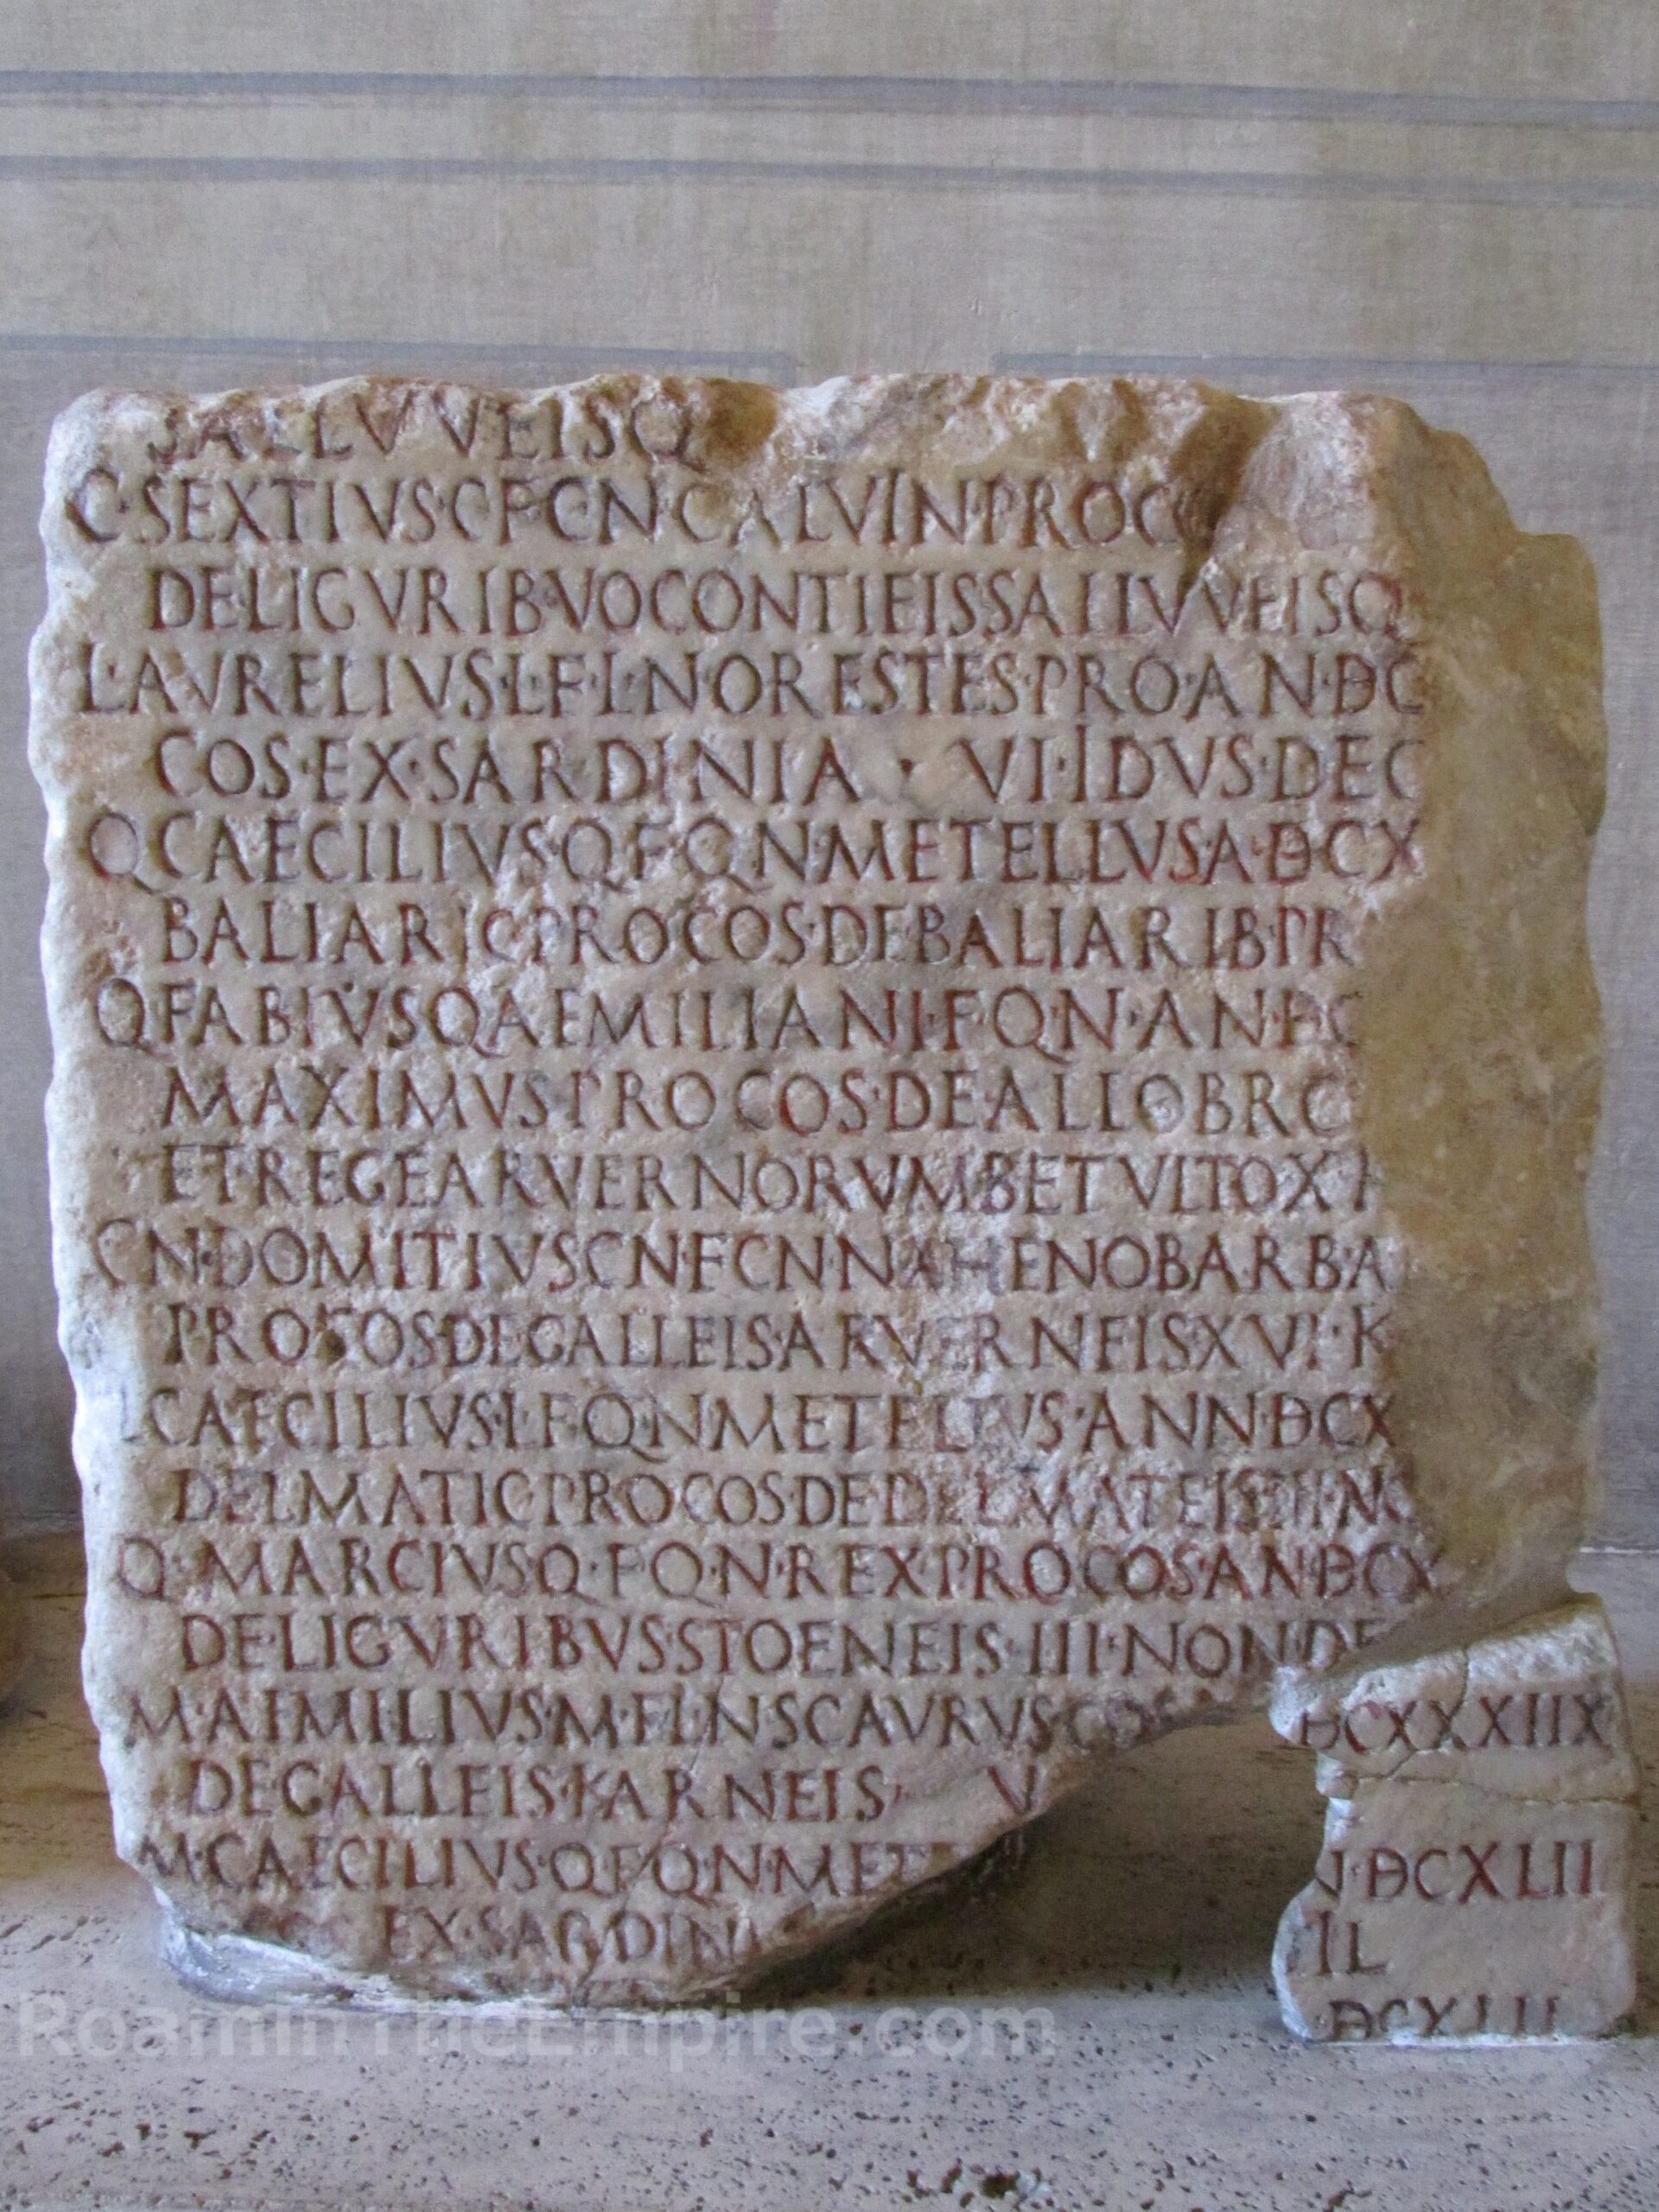 SALLVVEISQ
C·SEXTIVS·C·F·C·N·CALVIN·PRO·C
DE·LIGVRIB·VOCONTIEIS SALLVVEISQ
L·AVRELIVS·L·F·L·N·ORESTES·PRO·AN·DC
COS·EX·SARDINIA · VI·IDVS·DEC
Q CAECILIVS·Q·F·Q·N METELLVS·A·DCX
BALIARIC PRO COS·DE BALIARIB·PR
Q FABIVS Q AEMILIANI·F·Q·N·AN·DC
MAXIMVS PRO COS·DE ALLOBRO
ET·REGE ARVERNORVM BETVLTO X K
CN·DOMITIVS CN·F CN·N AHENOBARB·A
PRO COS·DE GALLEIS ARVERNEIS XVI·K
L CAECILIVS·L·F Q·N METELLVS·ANN·DCX
DELMATIC PRO COS·DE DELMATEIS III·NO
Q·MARCIVS Q·F Q·N·REX PRO COS·AN·DCX
DE·LIGVRIBVS STOENEIS·III·NON DE
M·AIMILIVS·M·F L·N SCAVRVS COS A DCXXXIIX
DE GALLEIS·KARNEIS V
M·CAECILIVS·Q·F Q·N·MET N·DCXLII
EX·SARDINI IL
DCXLII
RoaminTheEmpire.com